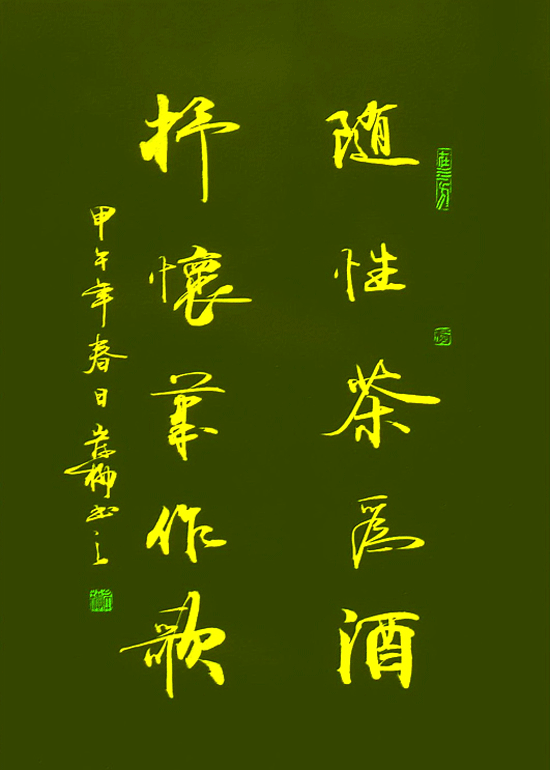 随性茶為酒
抒懷葉作歌
甲午年春日書之